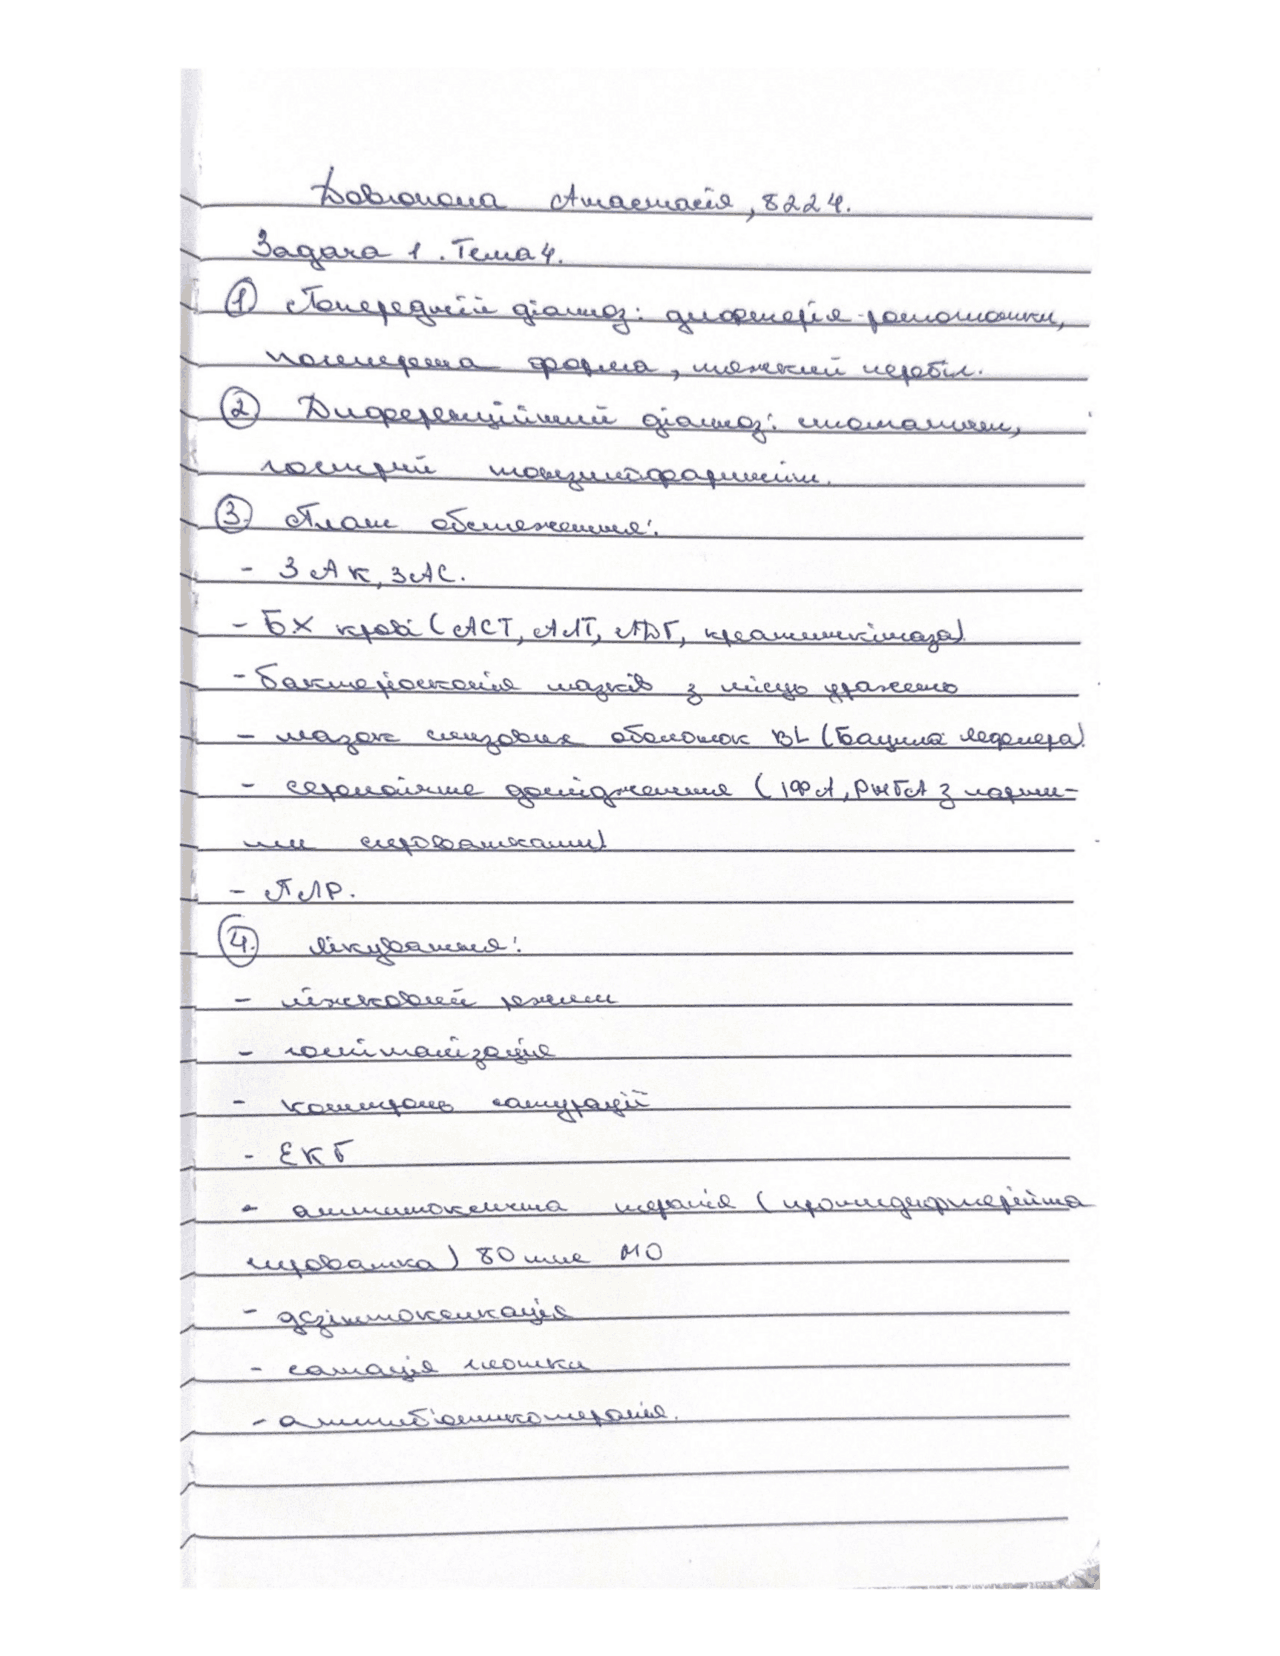 Анастасія, 8224.
Задача 1. Тема 4.
① Попередній діагноз: дифтерія ротоглотки,
поширена форма, тяжкий перебіг.
② Диференційний діагноз: стоматити,
гострий тонзилофарингіт.
③ План обстеження:
- ЗАК, ЗАС.
- БХ крові (АСТ, АЛТ, ЛДГ, креатинкіназа)
- бактеріоскопія мазків з місць уражень
- мазок слизових оболонок BL (Бацила Лефлера)
- серологічне дослідження (ІФА, РНГА з парни-
ми сироватками)
- ПЛР.
④ Лікування:
- ліжковий режим
- госпіталізація
- контроль сатурації
- ЕКГ
- антитоксична терапія (протидифтерійна
сироватка) 80 тис МО
- дезінтоксикація
- санація глотки
- антибіотикотерапія.